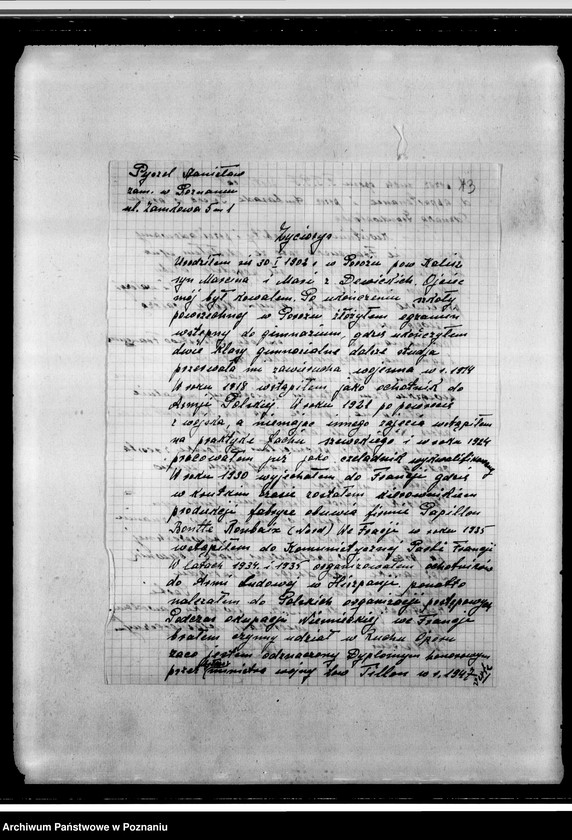 Pyzel Stanisław
zam. w Poznaniu
ul. Zamkowa 5 m 1
43
Życiorys
Urodziłem się 30 I 1902 r w pow Kalisz
syn Marcina i Marii z Ojciec
mój był kowalem. Po ukończeniu szkoły
powszechnej w złożyłem egzamin
wstępny do gimnazium, gdzie ukończyłem
dwie klasy gimnazialne dalsze studja
przerwała mi zawierucha wojenna w r. 1914
W roku 1918 wstąpiłem jako ochotnik do
Armji Polskiej. W roku 1921 po powrocie
z wojska a niemając innego zajęcia wstąpiłem
na praktykę fachu szewckiego i w roku 1924
pracowałem już jako czeladnik wykwalifikowany
W roku 1930 wyjechałem do Francji gdzie
w krótkim czasie zostałem kierownikiem
produkcji fabryce obuwia firmie Papillon
Roubaix (Nord) We Francji w roku 1935
wstąpiłem do Komunistycznej Partii Francji
W latach 1934 i 1935 organizowałem ochotników
do Armi Ludowej w Hiszpanje ponadto
należałem do Polskich organizacji postępowych
Podczas okupacji Niemieckiej we Francji
brałem czynny udział w Ruchu Oporu
zaco jestem odznaczony Dyplomem honorowym
przez ministra wojny tow Tillon w r. 1947
Archiwum Państwowe w Poznaniu